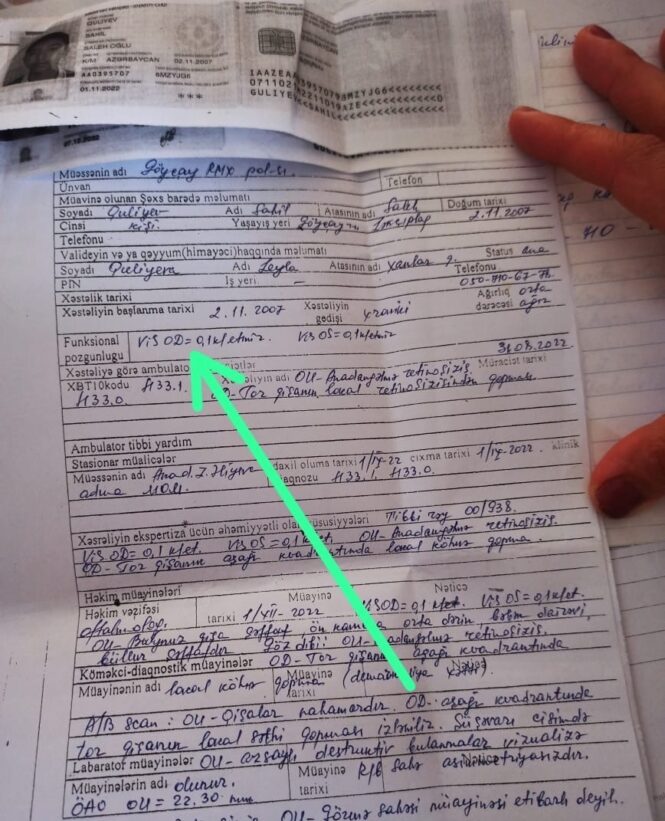 QULİYEV
SAHİL
SALEH OĞLU
K/M AZƏRBAYCAN 02.11.2007
AA0395707 6MZYJG6
01.11.2022 ***
Müəssənin adı Göyçay RMX pol-sı.
Ünvan Telefon
Müayinə olunan Şəxs barədə məlumatı
Soyadı Quliyev Adı Sahil Atasının adı Saleh Doğum tarixi
Cinsi kişi Yaşayış yeri Göyçay 2.11.2007
Telefonu
Valideyin və ya qəyyum(himayəçi)haqqında məlumatı
Soyadı Quliyeva Adı Leyla Atasının adı Xanlar q. Status ana
PİN İş yeri — Telefonu
050-710-67-78
Xəstəlik tarixi
Xəstəliyin başlanma tarixi 2.11.2007 Xəstəliyin gedişi xroniki Ağırlıq dərəcəsi orta ağır
Funksional pozgunlugu Vis OD=0,1 k/etmir. Vis OS=0,1 k/etmir
Xəstəliyə görə ambulator 31.08.2022
XBT10kodu H33.1. Xəstəliyin adı OU-Anadangəlmə retinosizis. Müraciət tarixi
H33.0. OD-Tor qişanın local retinosizisindən qopması.
Ambulator tibbi yardım
Stasionar müalicələr
Müəssənin adı Akad. Z. Əliyeva daxil oluma tarixi 1/IX-22 çıxma tarixi 1/IX-2022. klinik
adına MOM. diaqnozu H33.1, H33.0.
Xəsrəliyin ekspertiza üçün əhəmiyyətli olan xüsusiyyələri Tibbi rəy 00/938.
Vis OD=0,1 k/et. Vis OS=0,1 k/et. OU-Anadangəlmə retinosizis.
OD-Tor qişanın aşağı kvadrantında local köhnə qopma.
Həkim müayinələri Müayinə Nəticə
Həkim vəzifəsi tarixi 1/XII-2022 Vis OD=0,1 k/et. Vis OS=0,1 k/et.
oftalmoloq. OU-Buynuz qişa şəffaf, ön kamera orta dərin, bəbək dairəvi,
büllur şəffafdır. Göz dibi: OU-Anadangəlmə retinosizis.
Köməkçi-diaqnostik müayinələr OD-Tor qişanın aşağı kvadrantında
Müayinənin adı local köhnə qopma Müayinə tarixi Nəticə
A/B scan: OU-Qişalar nahamardır. OD: aşağı kvadrantında
tor qişanın local səthi qopması izlənilir. Şüşəvari cisimdə
Labarator müayinələr OU-azsaylı destruktiv bulanmalar vizualizə
Müayinələrin adı olunur. Müayinə tarixi Nəticə
ÖAO OU=22.30 mm.
OU-Görmə sahəsi müayinəsi etibarlı deyil.